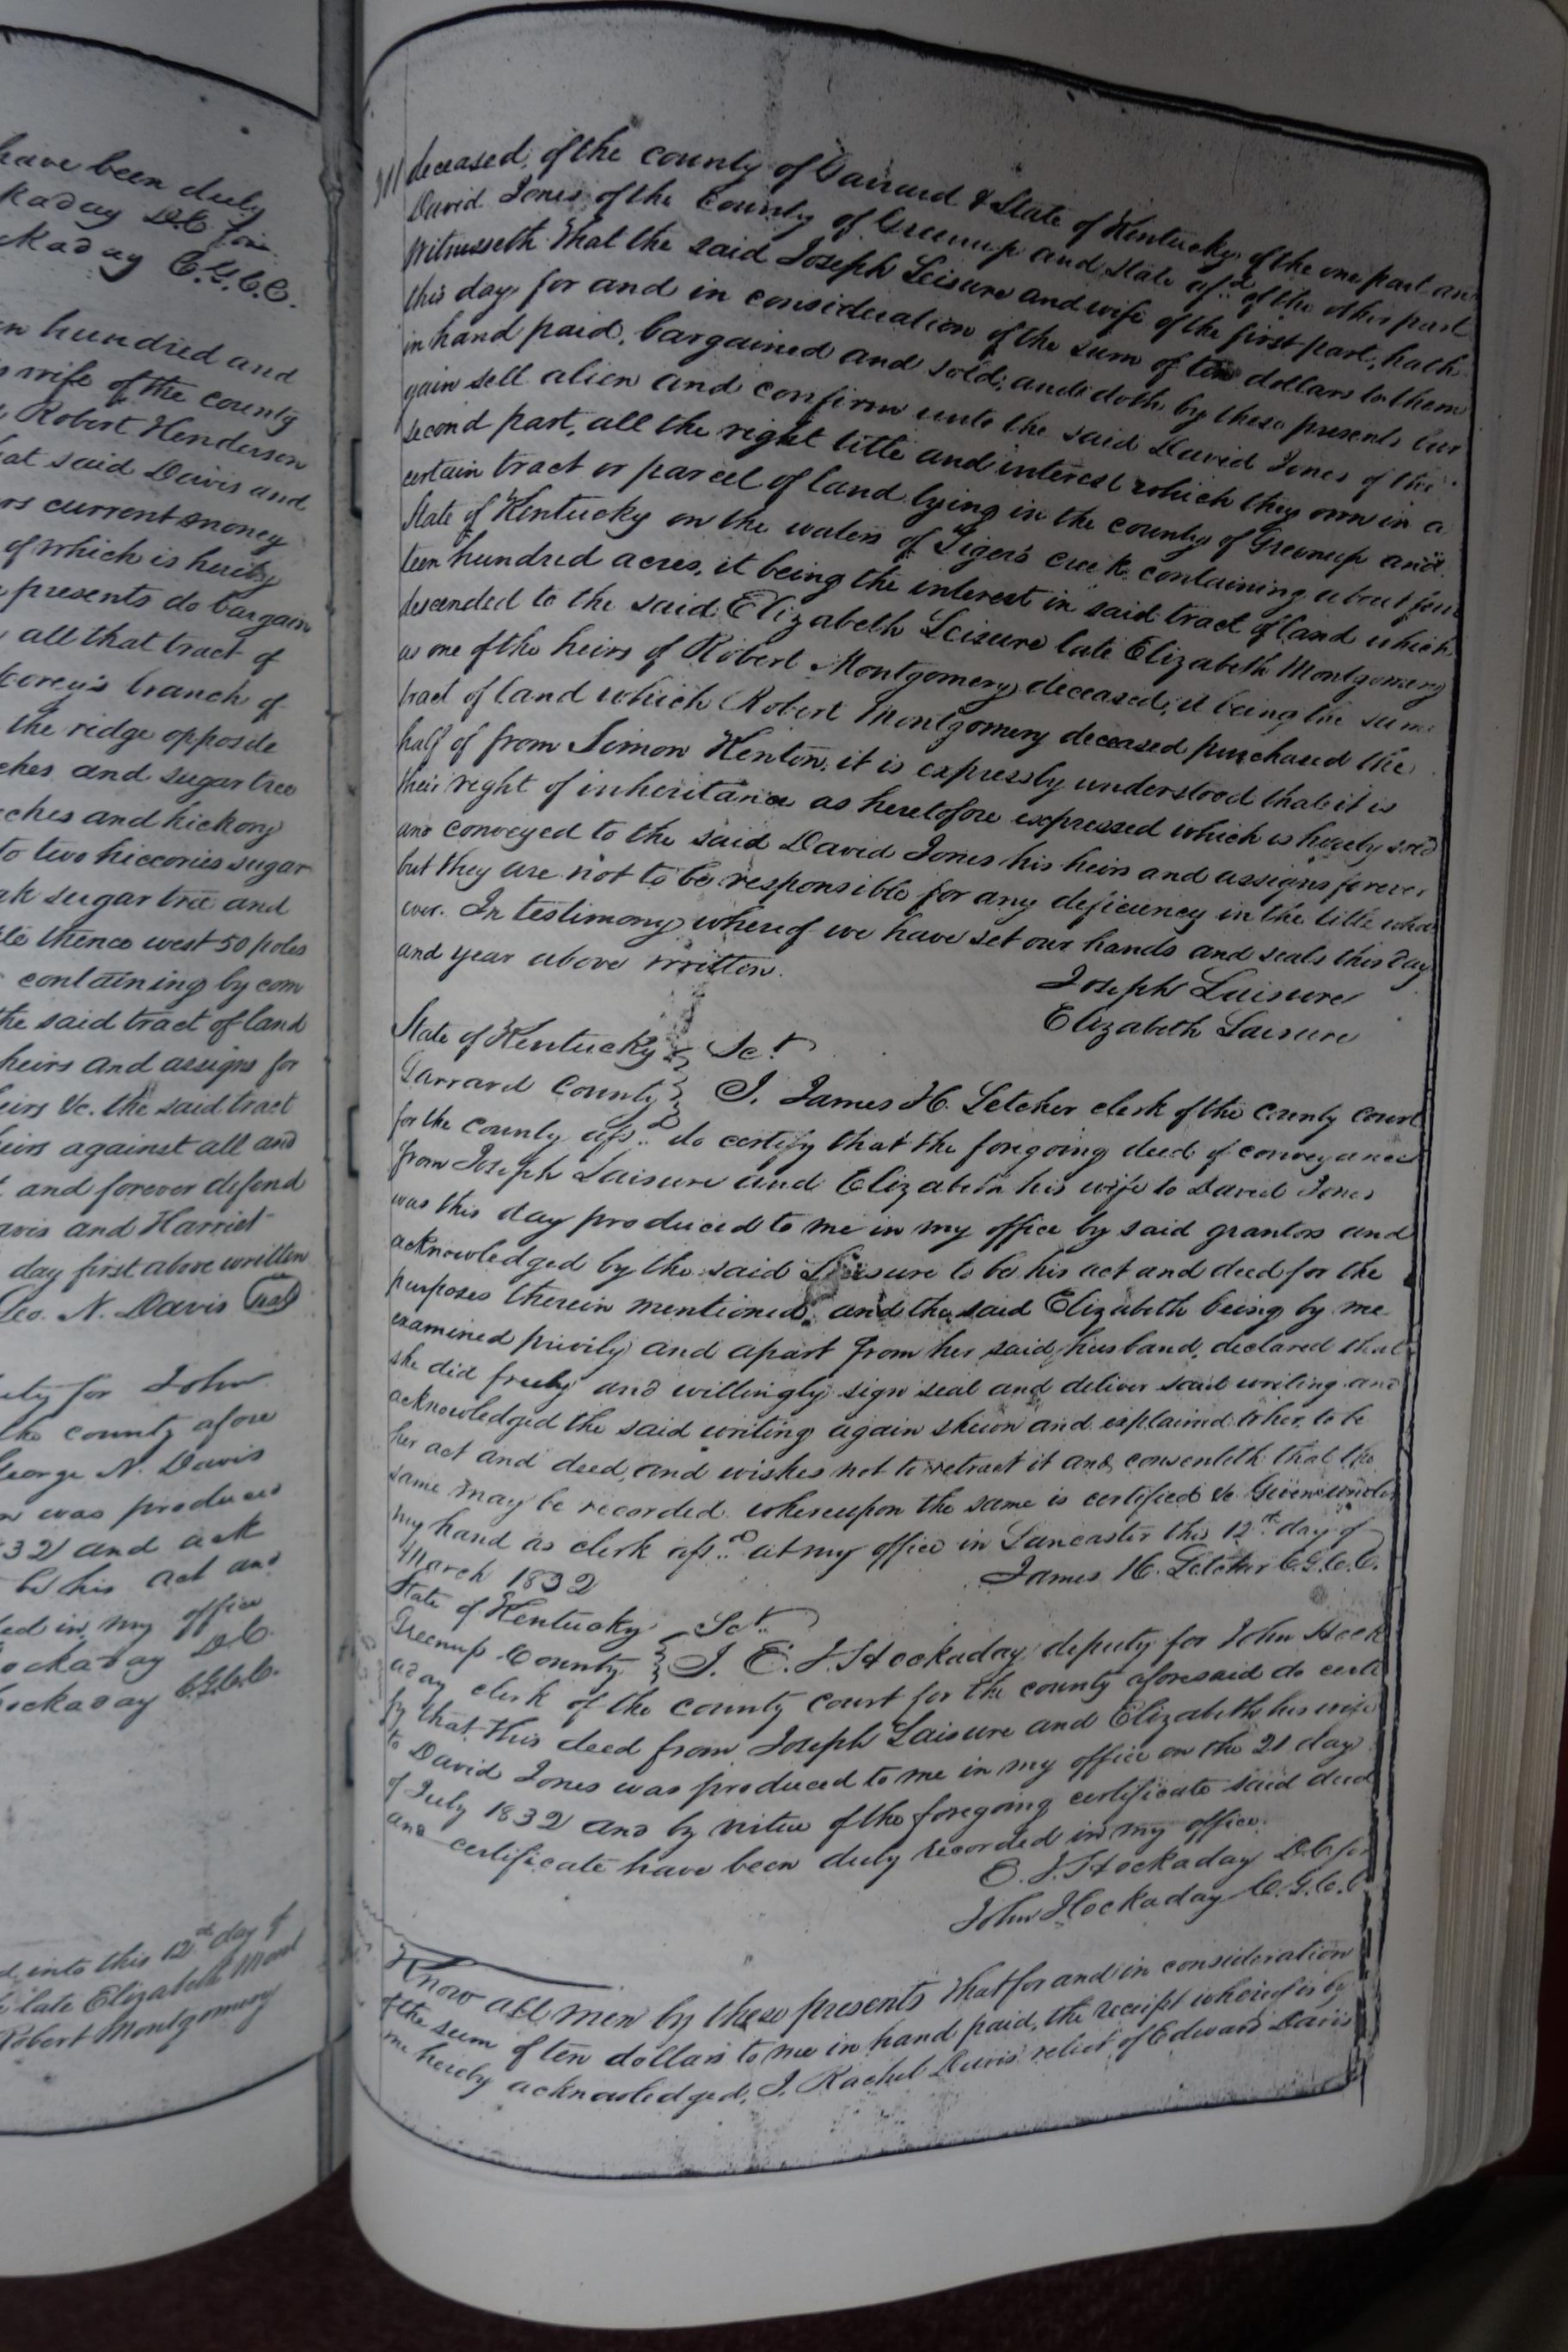 have been duly
kaday D.C. for
ckaday C.G.C.C.
n hundred and
s wife of the county
Robert Henderson
at said Davis and
rs current money
of which is hereby
presents do bargain
all that tract of
corey's branch of
the ridge opposite
ches and sugar tree
eches and hickory
to two hiccories sugar
ak sugar tree and
thence west 50 poles
containing by com
the said tract of land
heirs and assigns for
eirs &c. the said tract
eirs against all and
and forever defend
avis and Harriet
day first above written
Geo. N. Davis Seal
uty for John
the county afore
George N. Davis
was produced
32 and ack
be his act and
ed in my office
ockaday D.C.
ockaday C.G.C.C.
d into this 12th day of
late Elizabeth Mont
Robert Montgomery
311 deceased, of the county of Garrard & State of Kentucky of the one part and
David Jones of the County of Greenup and State afsd of the other part
Witnesseth That the said Joseph Leisure and wife of the first part, hath
this day for and in consideration of the sum of ten dollars to them
in hand paid, bargained and sold, and doth by these presents bar
gain sell alien and confirm unto the said David Jones of the
second part, all the right title and interest which they own in a
certain tract or parcel of land lying in the county of Greenup and
State of Kentucky on the waters of Tiger's creek containing about
teen hundred acres, it being the interest in said tract of land which
descended to the said Elizabeth Leisure late Elizabeth Montgomery
as one of the heirs of Robert Montgomery deceased, it being the same
tract of land which Robert Montgomery deceased purchased the
half of from Simon Kenton, it is expressly understood that it is
their right of inheritance as heretofore expressed which is hereby sold
and conveyed to the said David Jones his heirs and assigns forever
but they are not to be responsible for any deficiency in the title
ever. In testimony whereof we have set our hands and seals this day
and year above written.
Joseph Laisure
Elizabeth Laisure
State of Kentucky Sct.
Garrard County I, James H. Letcher clerk of the county court
for the county afsd do certify that the foregoing deed of conveyance
from Joseph Laisure and Elizabeth his wife to David Jones
was this day produced to me in my office by said grantors and
acknowledged by the said Leisure to be his act and deed for the
purposes therein mentioned, and the said Elizabeth being by me
examined privily and apart from her said husband, declared that
she did freely and willingly sign seal and deliver said writing and
acknowledged the said writing again shewn and explained to her, to be
her act and deed, and wishes not to retract it and consenteth that the
same may be recorded whereupon the same is certified &c. Given under
my hand as clerk afsd at my office in Lancaster this 12th day of
March 1832 James H. Letcher C.G.C.C.
State of Kentucky Sct.
Greenup County I. E. J. Hockaday deputy for John Hock
aday clerk of the county court for the county aforesaid do certi
fy that this deed from Joseph Laisure and Elizabeth his wife
to David Jones was produced to me in my office on the 21 day
of July 1832 and by virtue of the foregoing certificate said deed
and certificate have been duly recorded in my office.
E. J. Hockaday D.C. for
John Hockaday C.G.C.C
Know all men by these presents That for and in consideration
of the sum of ten dollars to me in hand paid, the receipt whereof is by
me hereby acknowledged, I, Rachel Davis relict of Edward Davis